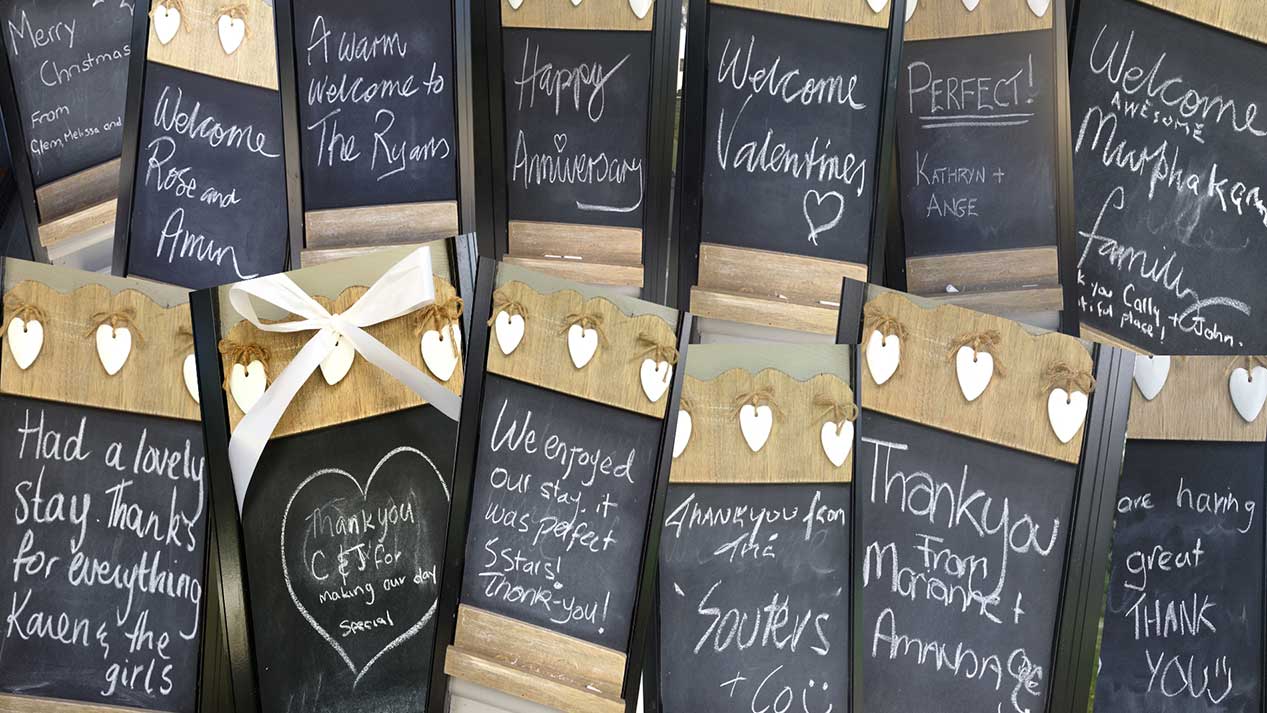 Merry
Christmas
From
Glenn, Melissa and
Welcome
Rose and
Amin
A warm
Welcome to
The Ryans
Happy
Anniversary
Welcome
Valentines
PERFECT!
KATHRYN +
ANGE
Welcome
AWESOME
family
you Cally + John.
place!
Had a lovely
stay. Thanks
for everything
Karen & the
girls
Thankyou
C & J for
making our day
special
We enjoyed
our stay. it
was perfect
5 stars!
Thank-you!
THANKYOU from
THE
SOUTERS
+ Co
Thankyou
From
Marianne +
AMANDA
are having
great
THANK
YOU